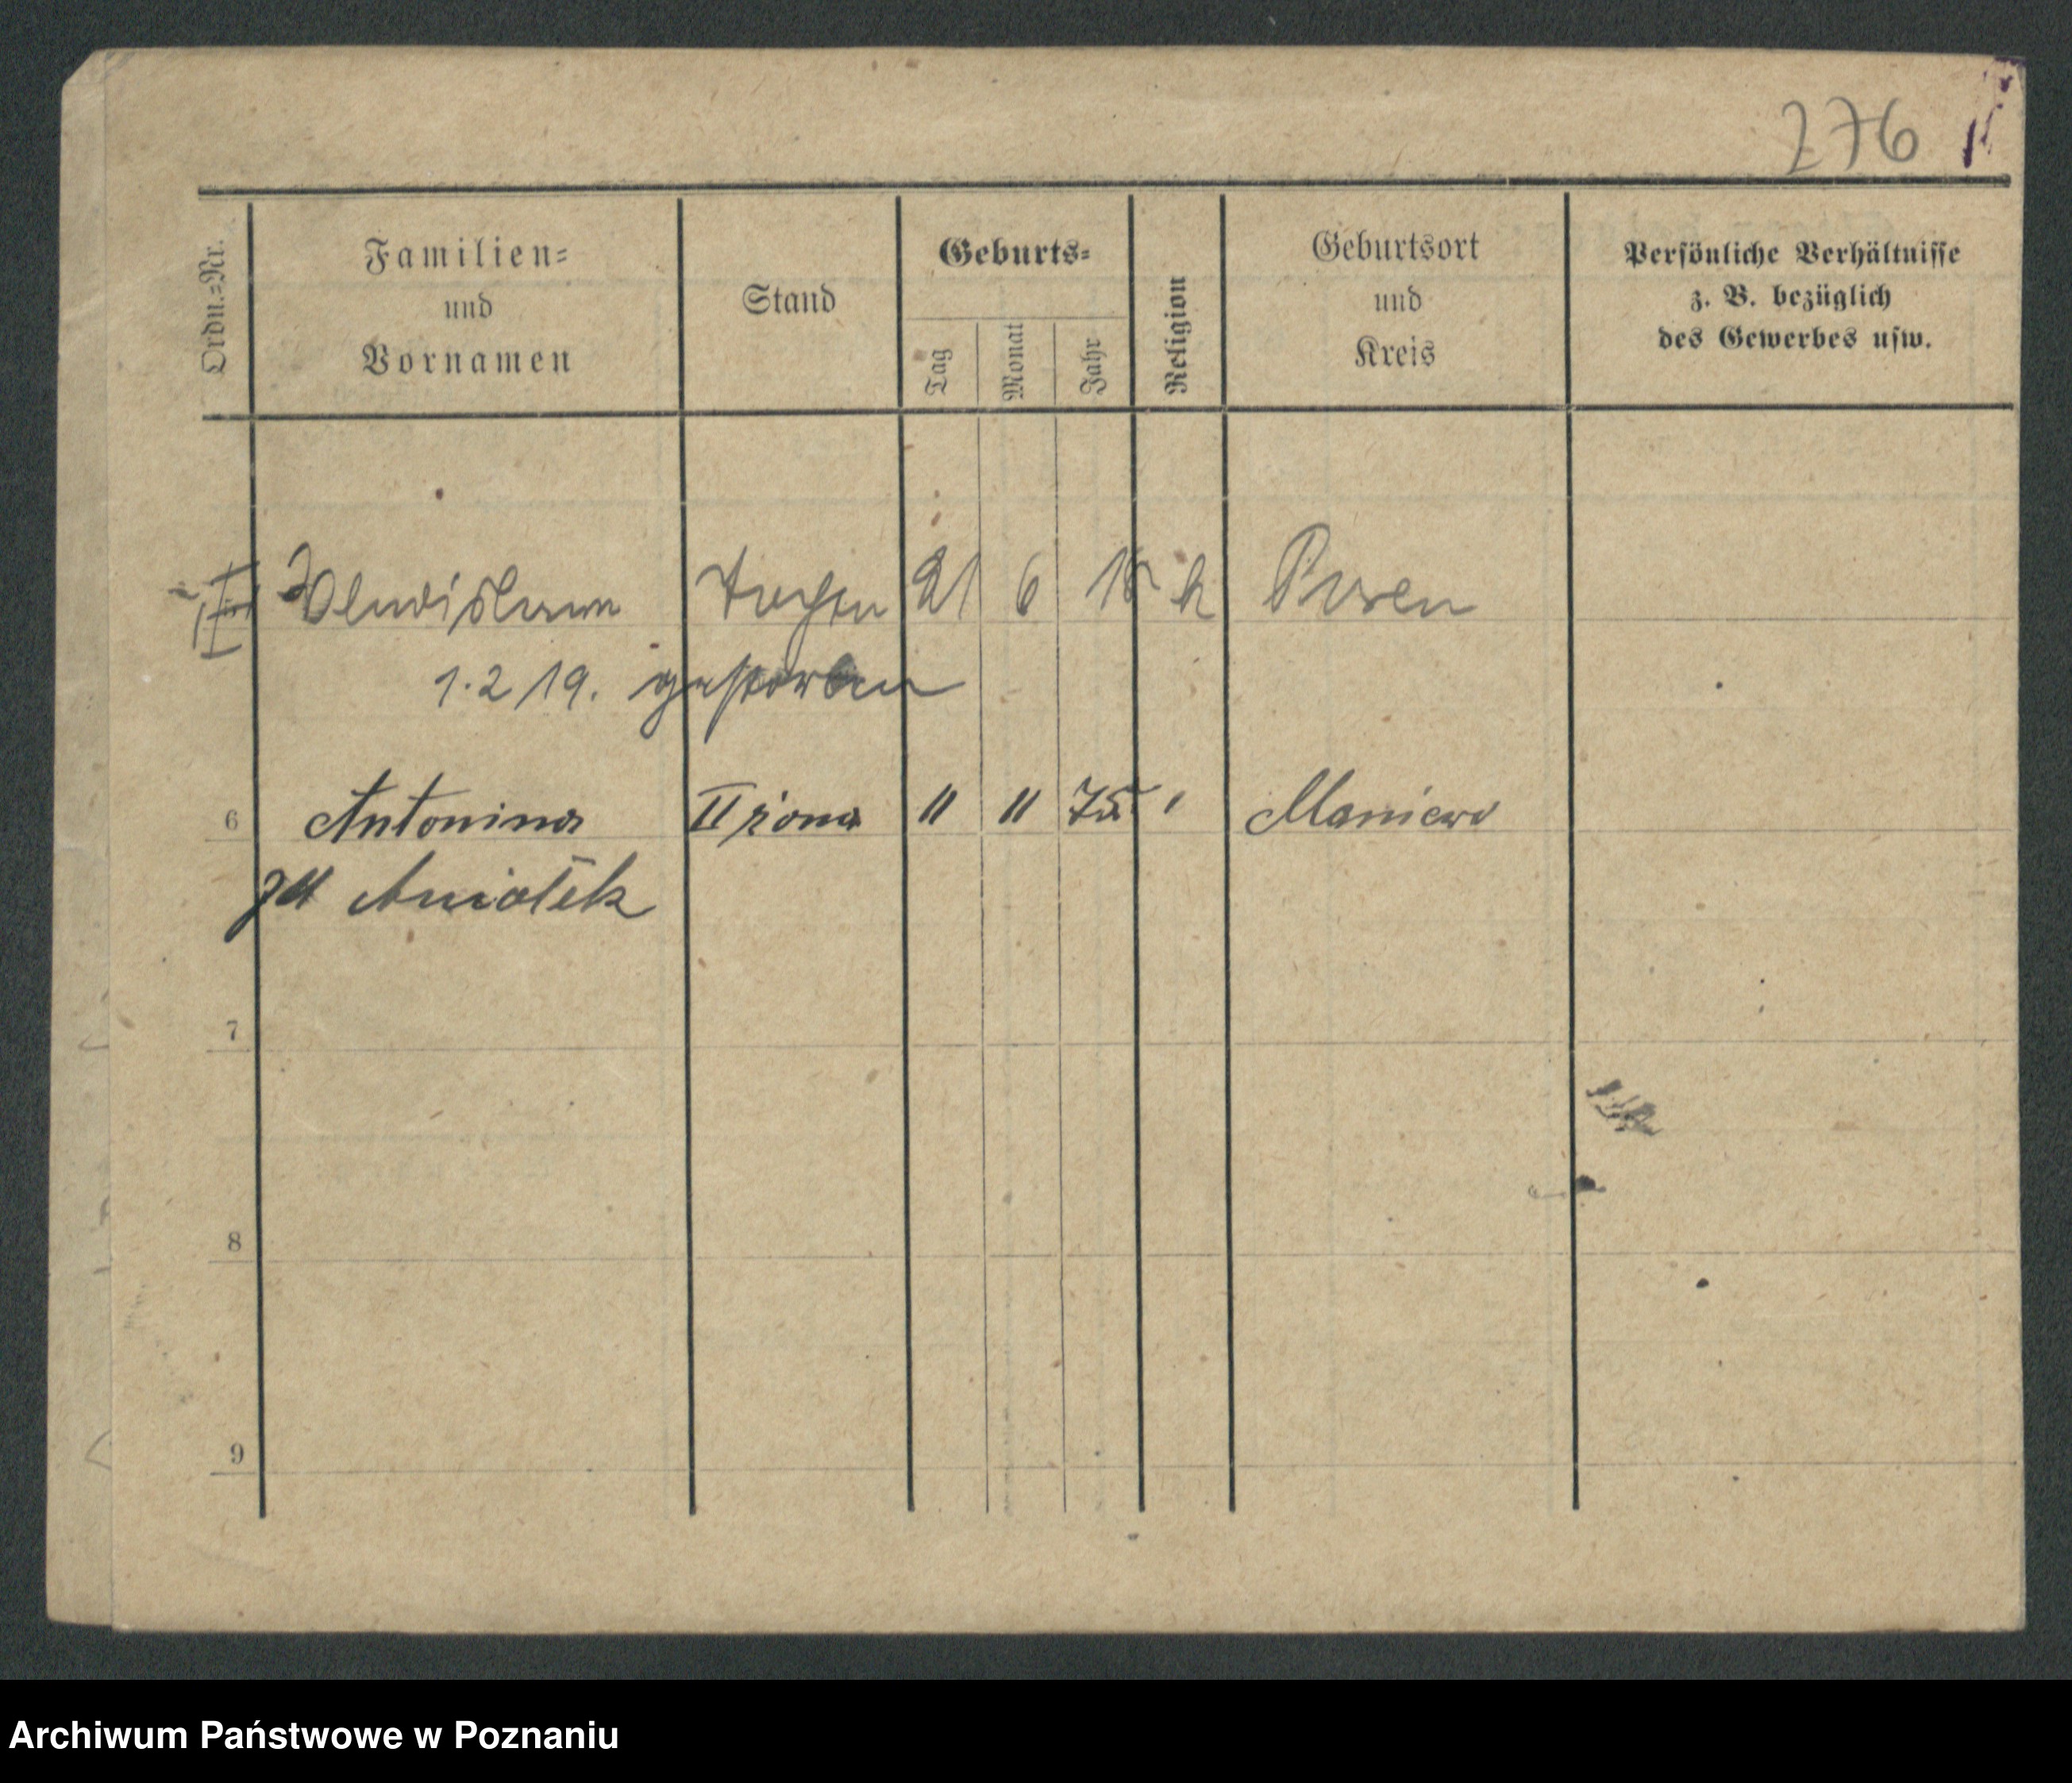 276
Ordn.=Nr.
Familien=
und
Vornamen
Stand
Geburts=
Tag
Monat
Jahr
Religion
Geburtsort
und
Kreis
Persönliche Verhältnisse
z. B. bezüglich
des Gewerbes usw.
21 6 18 k Posen
1.2 19. gestorben
6 Antonina II żona " " 75 " Maniewo
Aniołek
7
8
9
Archiwum Państwowe w Poznaniu